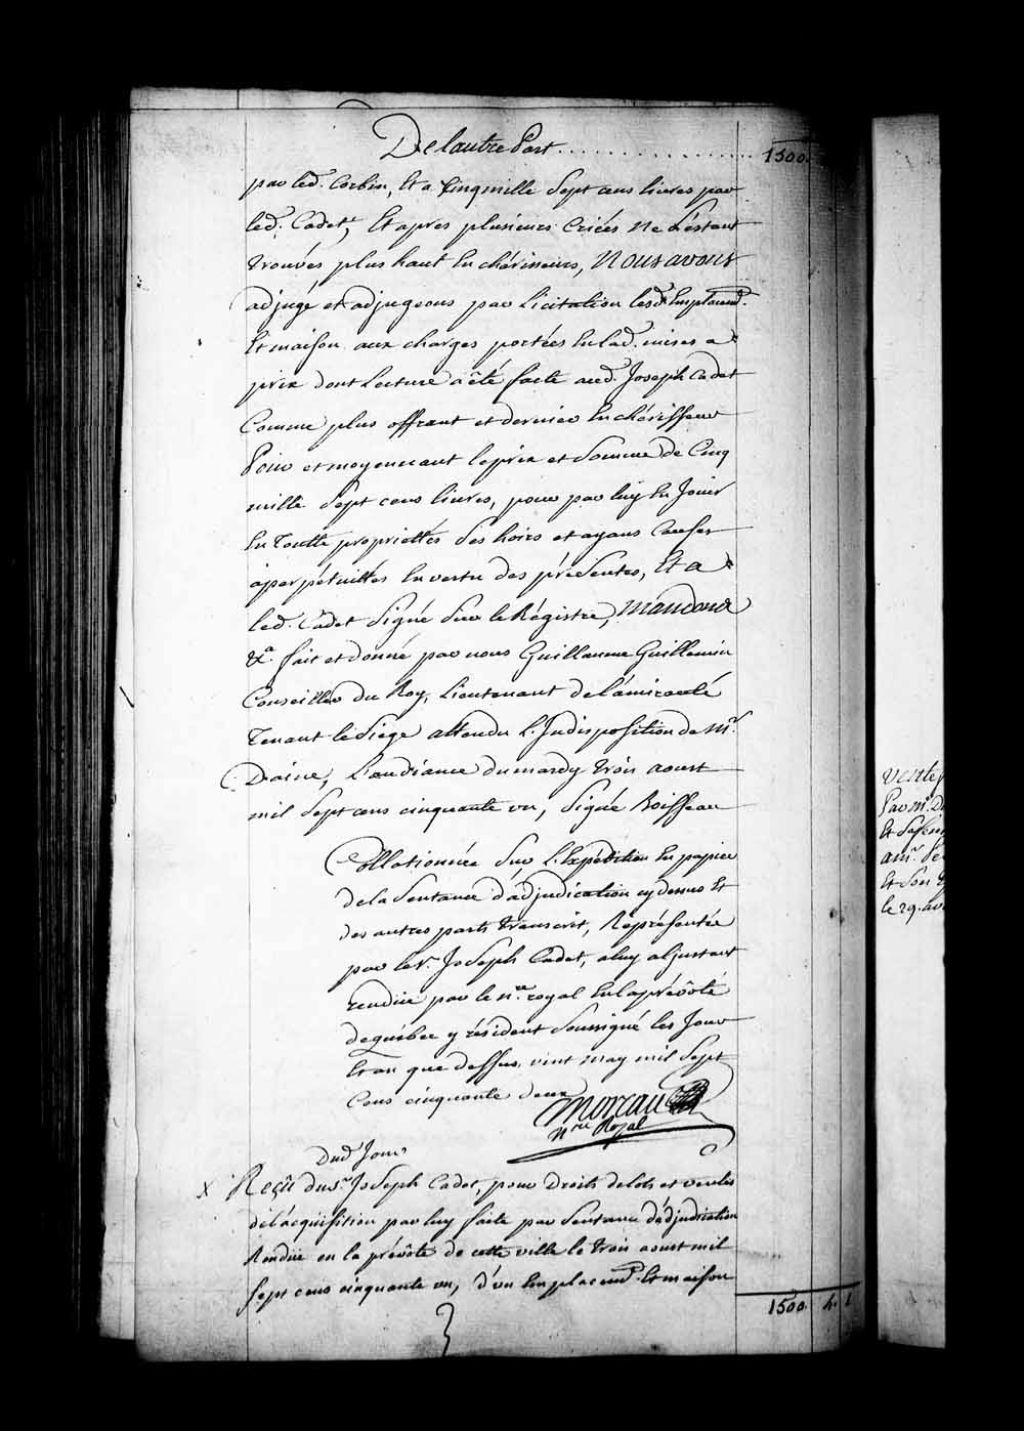 De lautre Part ............... 1500.
par led. Corbin, Et a Cinq mille Sept cens livres par
led. Cadet, Et apres plusieurs Criées ne S'estant
trouvés plus haut Encherisseurs, Nous avons
adjugé et adjugeons par Licitation lesd. Emplacemt.
Et maison aux charges portées En lad. mises a
prix dont Lecture a été faite aud. Joseph Cadet
Comme plus offrant et dernier Enchérisseur
Pour et moyennant le prix et Somme de Cinq
mille Sept cens livres, pour par luy En Jouir
En Toutte propriettés Ses hoirs et ayans Causes
a perpétuittés En vertu des présentes, Et a
led. Cadet Signé Sur le Régistre, Mandons
&a. fait et donné par nous Guillaume Guillemin
Conseiller du Roy, Lieutenant de l'amirauté
Tenant le Siége attendu L'Indisposition de Mr.
Daine, L'audiance du mardy trois aoust
mil Sept cens cinquante un, Signé Boisseau
Collationnée Sur L'Expédition En papier
de la Sentance d'adjudication cy dessus Et
des autres parts transcrit, Représentée
par le Sr. Joseph Cadet, a luy a L'Instant
rendüe par le nre. royal En la prévôté
de québec y résident Soussigné les Jour
Et an que dessus, vint may mil Sept
Cens cinquante deux
Moreau
Nre Royal
Dud Jour
X Reçû du Sr. Joseph Cadet, pour Droits de lots et ventes
de l'acquisition par luy faite par Sentance d'adjudication
Rendüe en la prévôté de cette ville le trois aoust mil
Sept cens cinquante un, d'un Emplacemt. Et maison
1500. 4. 1
vente
Par Mr. D
Et
a Mr.
Et Son
le 29. av